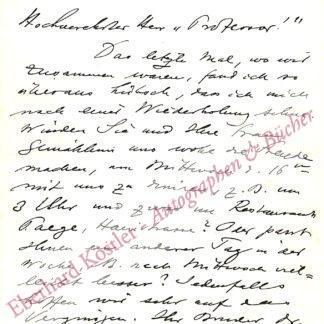 Hochverehrter Herr „Professor!"
Das letzte Mal, wo wir
zusammen waren, fand ich so
überaus hübsch, dass ich mich
nach einer Wiederholung sehne.
Würden Sie und Ihre Frau
Gemahlin uns wohl die Freude
machen, am Mittwoch d. 16
mit uns zu z. B. um
3 Uhr und zwar im Restaurant
? Oder passt
Ihnen ein anderer Tag in der
Woche z. B. nach Mittwoch viel-
leicht besser? Jedenfalls
hoffen wir sehr auf das
Vergnügen. Ihr Bruder
Eberhard Köstler - Autographen & Bücher